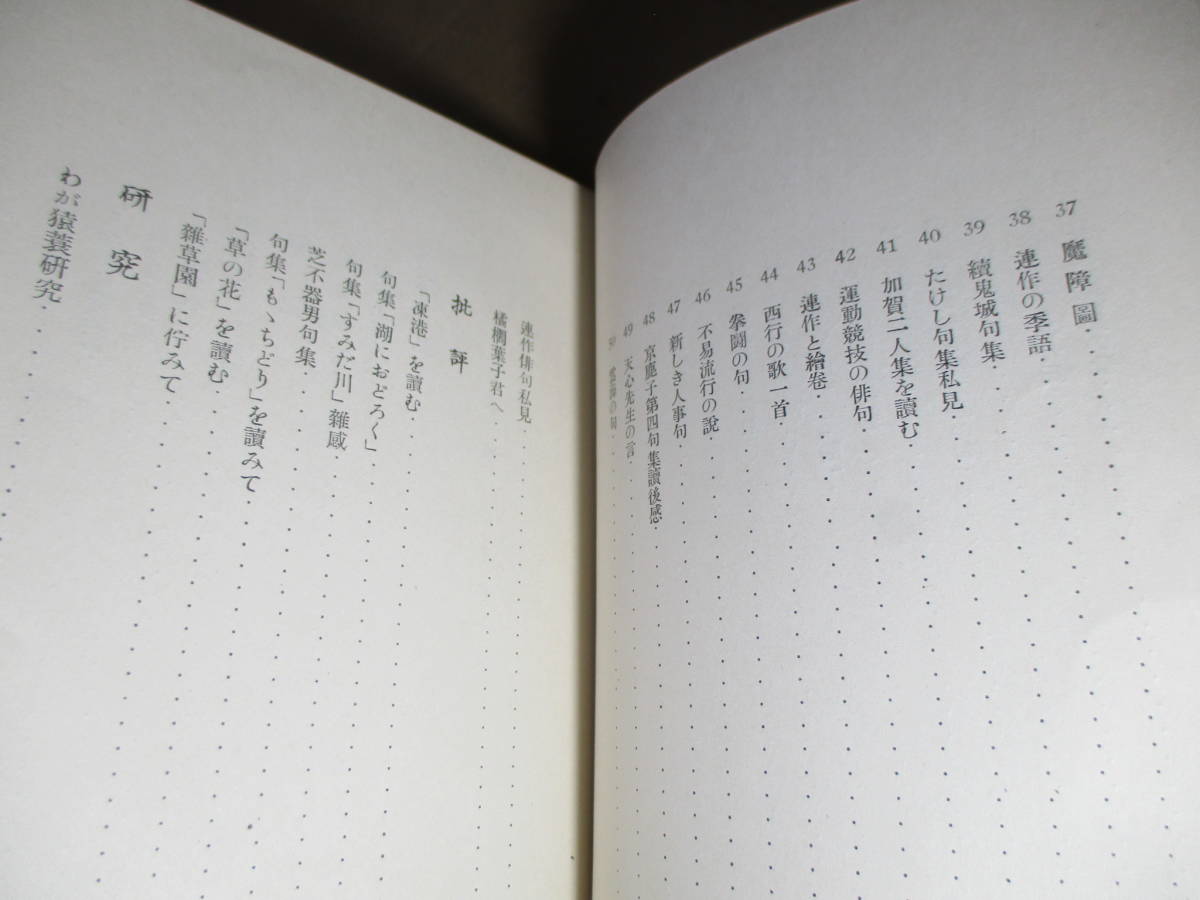 37 魔障圖
38 連作の季語
39 續鬼城句集
40 たけし句集私見
41 加賀二人集を讀む
42 運動競技の俳句
43 連作と繪卷
44 西行の歌一首
45 拳闘の句
46 不易流行の說
47 新しき人事句
48 京鹿子第四句集讀後感
49 天心先生の言
50 の句
連作俳句私見
橘櫚葉子君へ
批評
「凍港」を讀む
句集「湖におどろく」
句集「すみだ川」雜感
芝不器男句集
句集「もゝちどり」を讀みて
「草の花」を讀む
「雜草園」に佇みて
研究
わが猿蓑研究